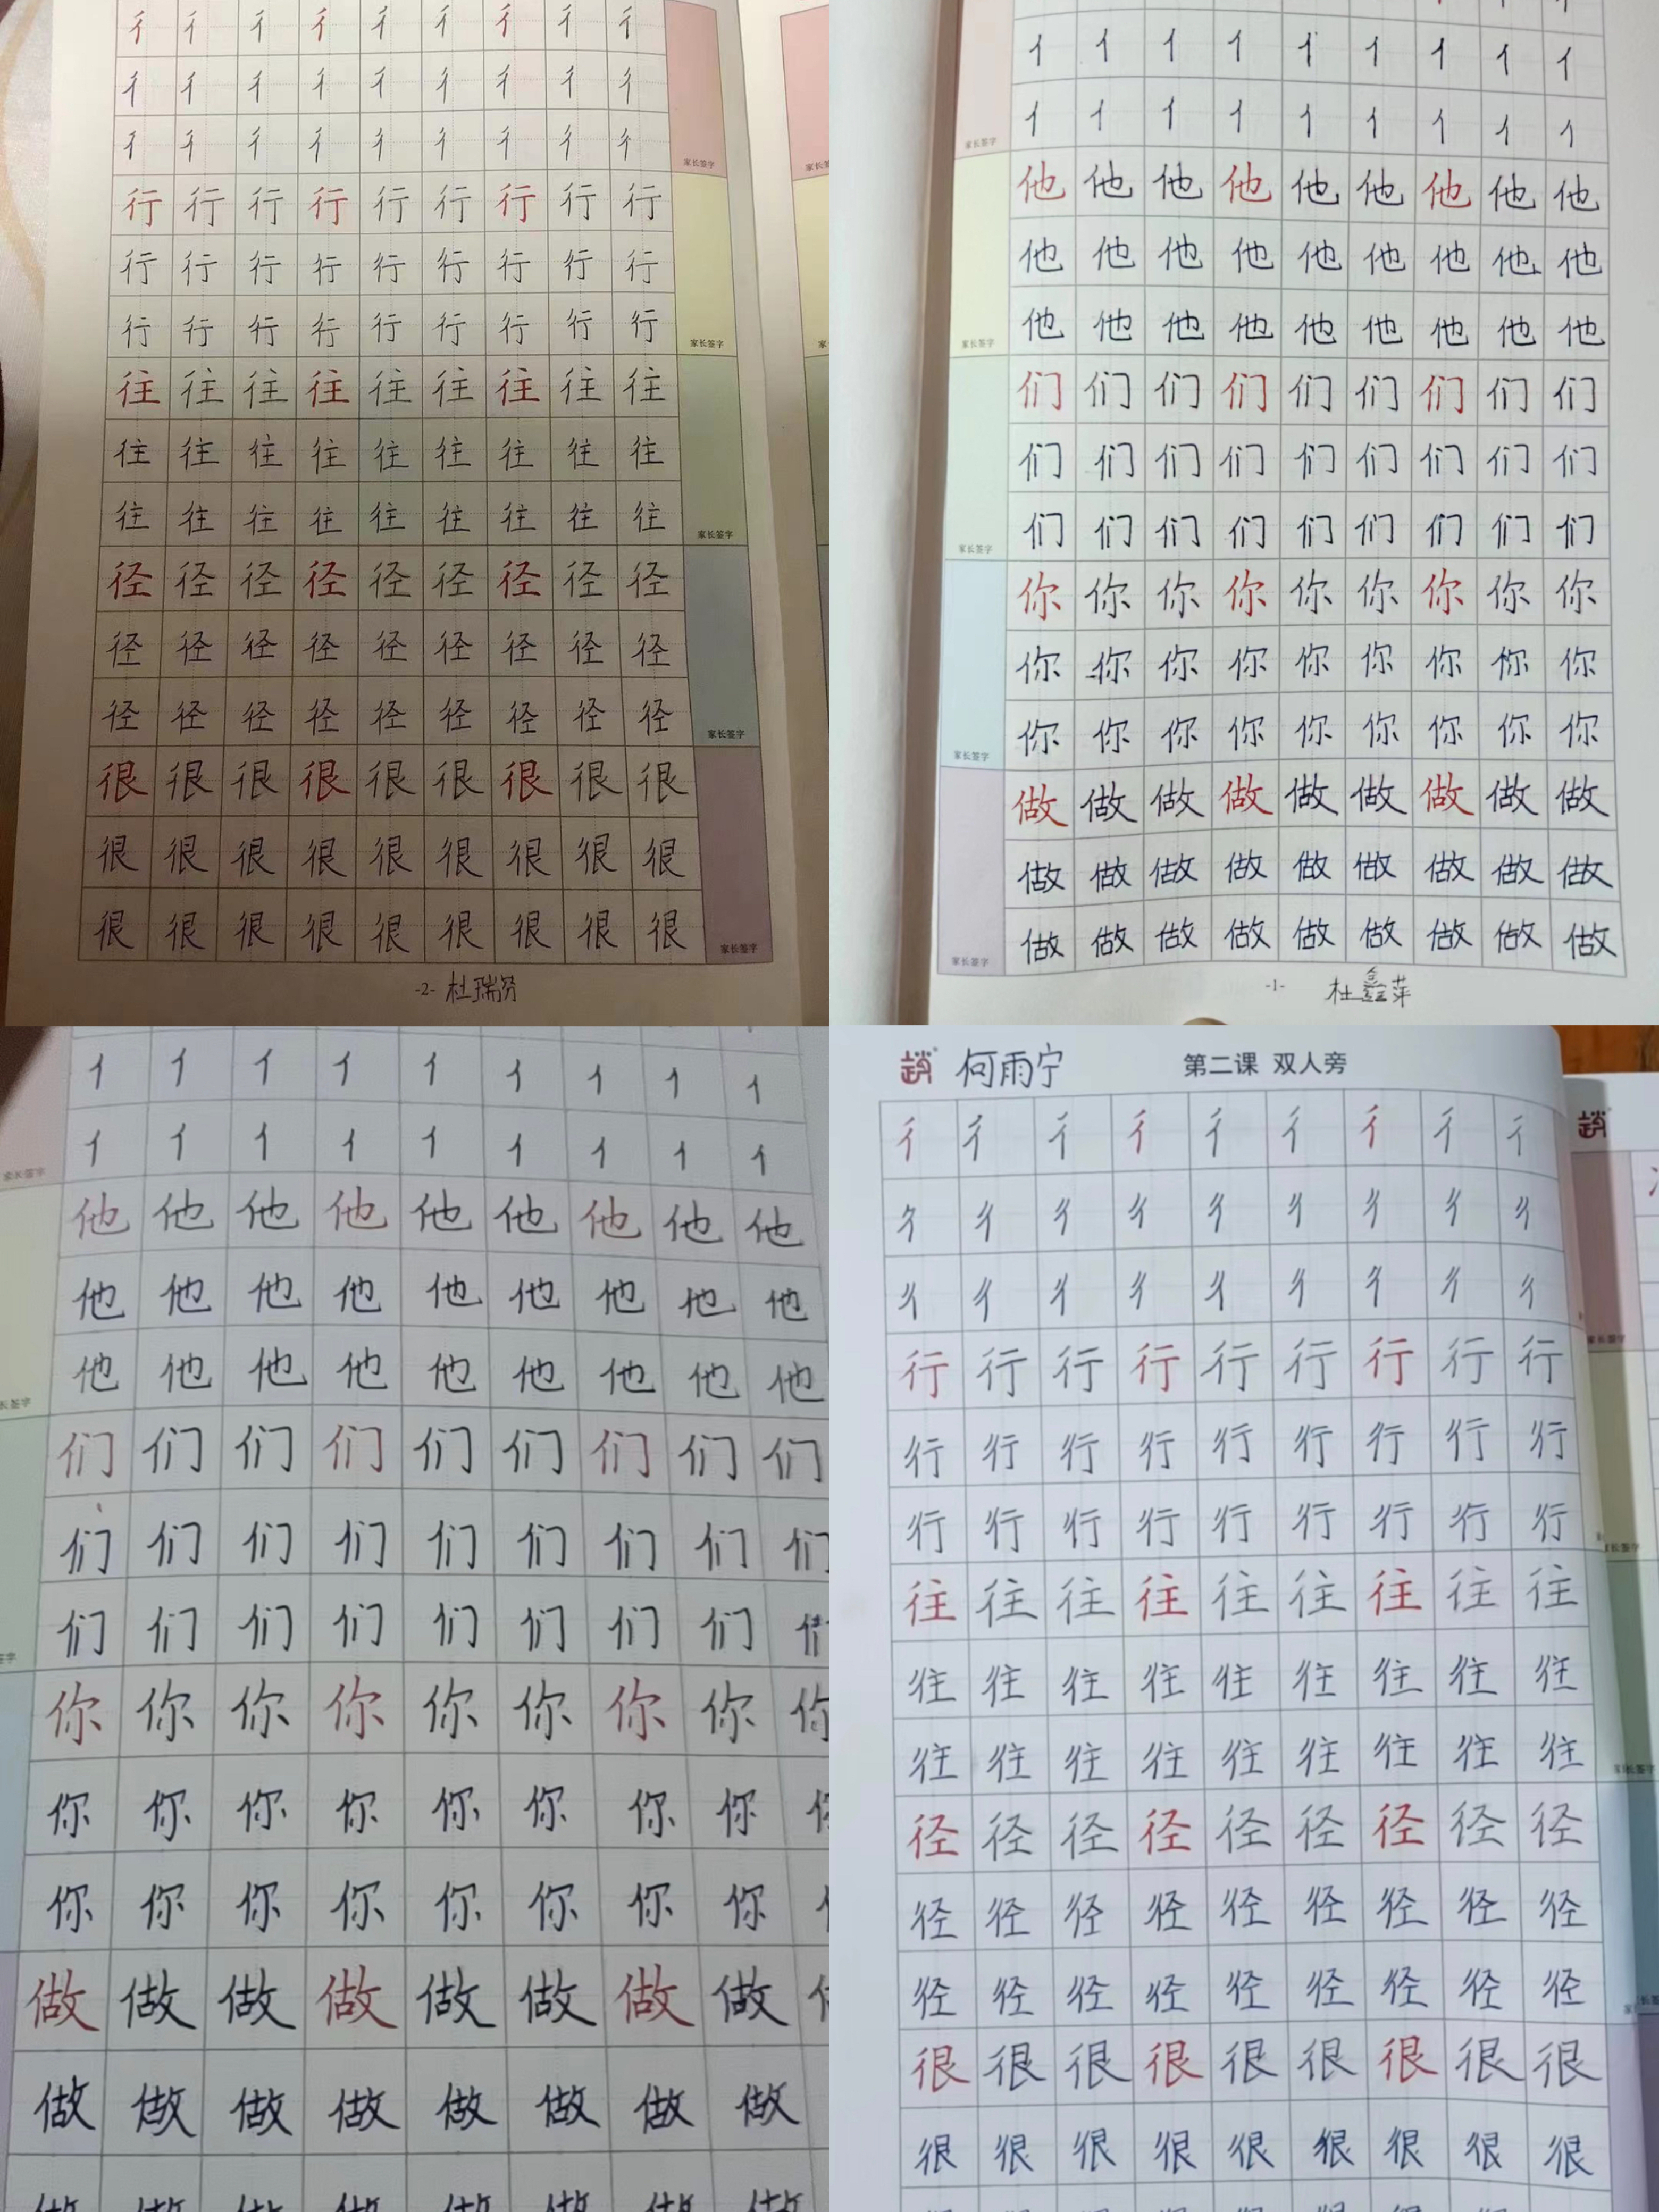 彳彳彳彳彳彳彳彳彳
彳彳彳彳彳彳彳彳彳
彳彳彳彳彳彳彳彳彳
家长签字
行行行行行行行行行
行行行行行行行行行
行行行行行行行行行
家长签字
往往往往往往往往往
往往往往往往往往往
往往往往往往往往往
家长签字
径径径径径径径径径
径径径径径径径径径
径径径径径径径径径
家长签字
很很很很很很很很很
很很很很很很很很很
很很很很很很很很很
家长签字
-2- 杜瑞
亻亻亻亻亻亻亻亻亻
亻亻亻亻亻亻亻亻亻
家长签字
他他他他他他他他他
他他他他他他他他他
他他他他他他他他他
家长签字
们们们们们们们们们
们们们们们们们们们
们们们们们们们们们
家长签字
你你你你你你你你你
你你你你你你你你你
你你你你你你你你你
家长签字
做做做做做做做做做
做做做做做做做做做
做做做做做做做做做
家长签字
-1- 杜鑫萍
亻亻亻亻亻亻亻亻亻
亻亻亻亻亻亻亻亻亻
家长签字
他他他他他他他他他
他他他他他他他他他
他他他他他他他他他
长签字
们们们们们们们们们
们们们们们们们们们
们们们们们们们们
签字
你你你你你你你你你
你你你你你你你你
你你你你你你你你
做做做做做做做做
做做做做做做做做
趙 何雨宁 第二课 双人旁
彳彳彳彳彳彳彳彳彳
彳彳彳彳彳彳彳彳彳
彳彳彳彳彳彳彳彳彳
家长签字
行行行行行行行行行
行行行行行行行行行
行行行行行行行行行
家长签字
往往往往往往往往往
往往往往往往往往往
往往往往往往往往往
家长签字
径径径径径径径径径
径径径径径径径径径
径径径径径径径径径
很很很很很很很很很
很很很很很很很很很
趙